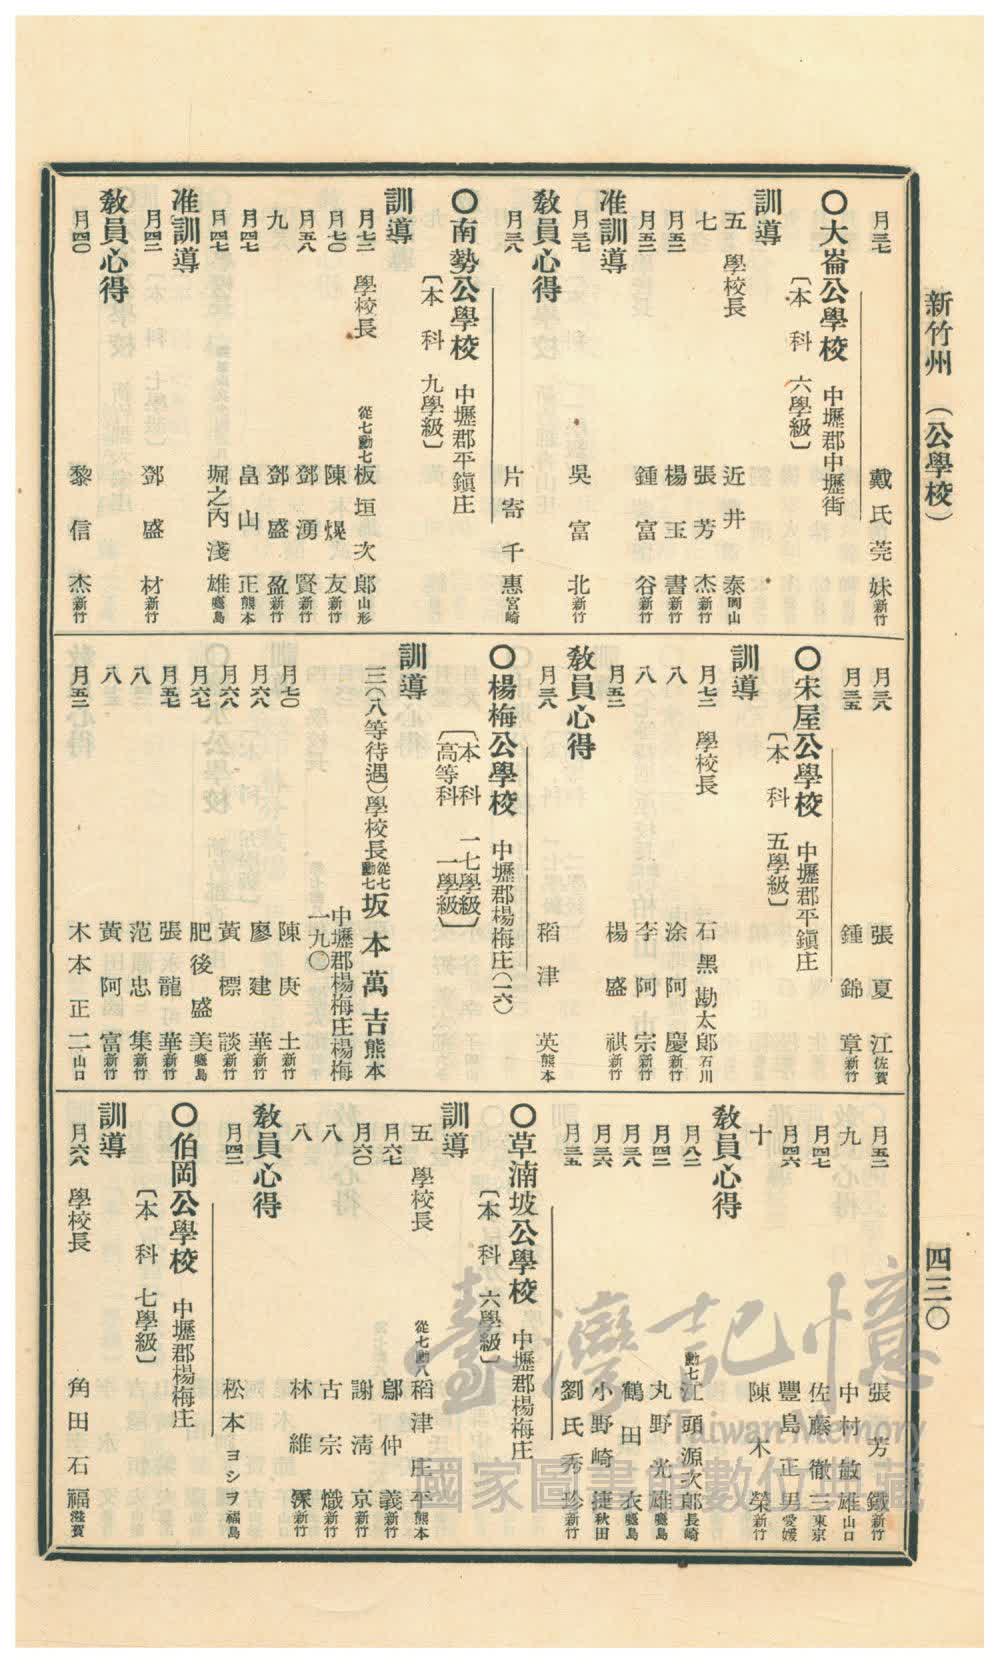 新竹州 (公學校) 四三〇
月三七 戴氏莞妹 新竹
〇大崙公學校 中壢郡中壢街
〔本科 六學級〕
訓導
五 學校長 近井泰 岡山
七 張芳杰 新竹
月五二 楊玉書 新竹
月五二 鍾富谷 新竹
准訓導
月三七 吳富北 新竹
敎員心得
月三八 片寄千惠 宮崎
〇南勢公學校 中壢郡平鎭庄
〔本科 九學級〕
訓導
月七二 學校長 從七勳七 板垣次郎 山形
月七〇 陳焜友 新竹
月五八 鄧湧賢 新竹
九 鄧盛盈 新竹
月四七 畠山正 熊本
月四七 堀之內淺雄 鹿兒島
准訓導
月四二 鄧盛材 新竹
敎員心得
月四〇 黎信杰 新竹
月三八 張夏江 佐賀
月三五 鍾錦章 新竹
〇宋屋公學校 中壢郡平鎭庄
〔本科 五學級〕
訓導
月七二 學校長 石黑勘太郎 石川
八 涂阿慶 新竹
八 李阿宗 新竹
月五二 楊盛祺 新竹
敎員心得
月三八 稻津英 熊本
〇楊梅公學校 中壢郡楊梅庄(一六)
〔本科 一七學級
高等科 一學級〕
訓導
三(八等待遇)學校長 從七勳七 坂本萬吉 熊本
中壢郡楊梅庄楊梅
一九〇
月七〇 陳庚土 新竹
月六八 廖建華 新竹
月六八 黃標談 新竹
月六七 肥後盛美 鹿兒島
月五七 張龍華 新竹
八 范忠集 新竹
八 黃阿富 新竹
月五二 木本正二 山口
月五二 張芳鐵 新竹
九 中村敏雄 山口
月四七 佐藤徹三 東京
月四六 豐島正男 愛媛
十 陳木榮 新竹
敎員心得
月八二 勳七 江頭源次郎 長崎
月四二 丸野光雄 鹿兒島
月三八 鶴田衣 鹿兒島
月三六 小野崎捷 秋田
月三五 劉氏秀珍 新竹
〇草湳坡公學校 中壢郡楊梅庄
〔本科 六學級〕
訓導
五 學校長 從七勳八 稻津庄平 熊本
月六七 鄔仲義 新竹
月六〇 謝淸京 新竹
八 古宗熾 新竹
八 林維 新竹
敎員心得
月四二 松本ヨシヲ 福島
〇伯岡公學校 中壢郡楊梅庄
〔本科 七學級〕
訓導
月六八 學校長 角田石福 滋賀
臺灣記憶
Taiwan Memory
國家圖書館數位典藏